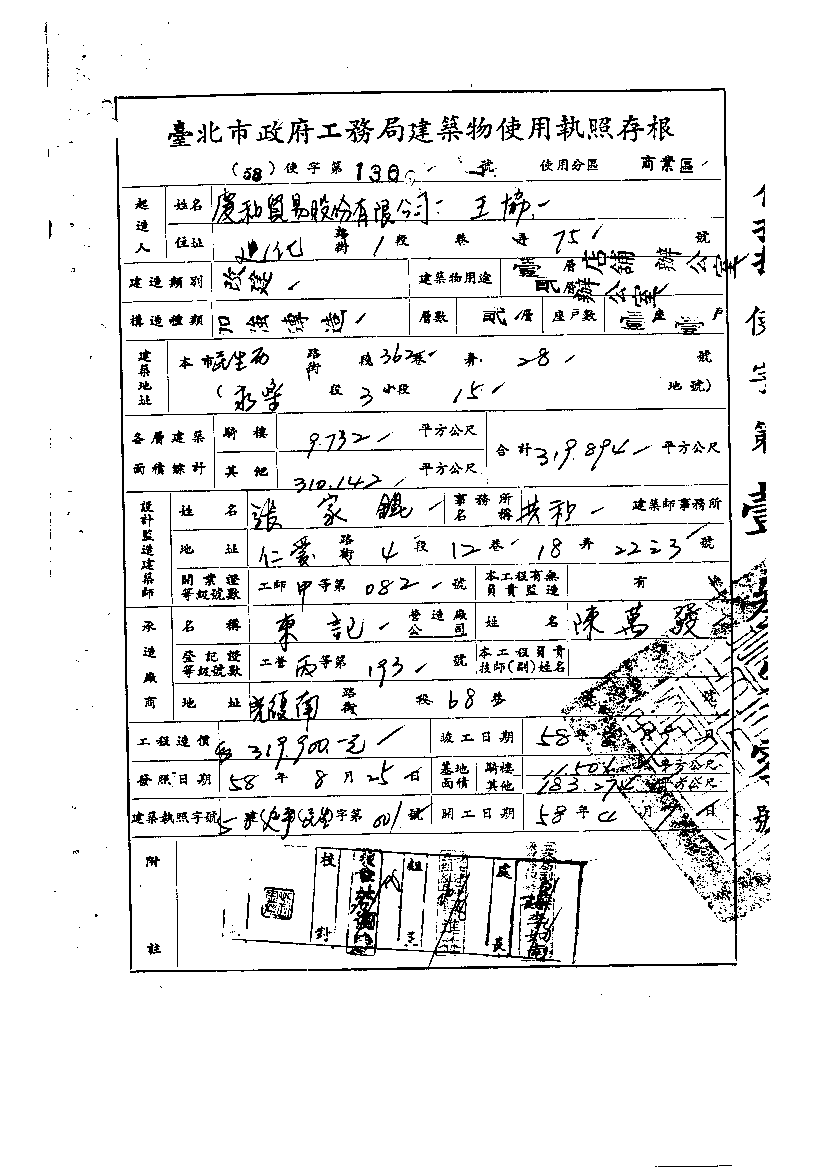 臺北市政府工務局建築物使用執照存根
(58)使字第 136 號 使用分區 商業區
起造人 姓名 慶和貿易股份有限公司 王協
住址 迪化 路街 1 段 巷 弄 75 號
建造類別 改建 建築物用途 壹層店舖辦公室 貳層辦公室
構造種類 加強磚造 層數 貳層 座戶數 壹座壹戶
建築地址 本市民生西 路街 段 362巷 弄 28 號
(永樂 段 3 小段 15 地號)
各層建築面積綜計 騎樓 9.752 平方公尺 合計 319.894 平方公尺
其他 310.142 平方公尺
設計監造建築師 姓名 張家錕 事務所名稱 扶和 建築師事務所
地址 仁愛 路街 4 段 12 巷 18 弄 22 23 號
開業證等級號數 工師甲等第 082 號 本工程有無負責監造 有
承造廠商 名稱 東記 營造廠公司 姓名 陳萬發
登記證等級號數 工營丙等第 193 號 本工程負責技師(副)姓名
地址 光復南 路街 段 68 巷 號
工程造價 319,900.-元 竣工日期 58年 月
發照日期 58年8月25日 基地面積 騎樓 11.504 平方公尺 其他 183.274 平方公尺
建築執照字號 字第001號 開工日期 58年4月 日
附註
校對 組長 處長
使字第壹 號